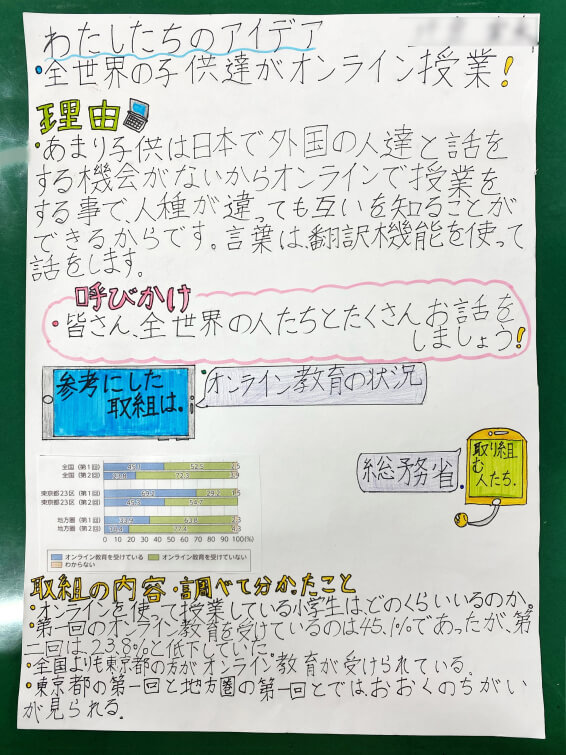 わたしたちのアイデア
・全世界の子供達がオンライン授業!
理由
・あまり子供は日本で外国の人達と話を
する機会がないからオンラインで授業を
する事で、人種が違っても互いを知ることが
できるからです。言葉は、翻訳機能を使って
話をします。
呼びかけ
・皆さん、全世界の人たちとたくさんお話を
しましょう!
参考にした
取組は。
オンライン教育の状況
総務省。
取り組
む
人たち.
全国(第1回) 45.1
全国(第2回) 23.8
東京都23区(第1回)
東京都23区(第2回)
地方圏(第1回)
地方圏(第2回)
0 10 20 30 40 50 60 70 80 90 100(%)
オンライン教育を受けている オンライン教育を受けていない
わからない
取組の内容・調べて分かったこと
・オンラインを使って授業している小学生は、どのくらいいるのか。
・第一回のオンライン教育を受けているのは45.1%であったが、第
二回は、23.8%と低下していた。
・全国よりも東京都の方がオンライン教育が受けられている。
・東京都の第一回と地方圏の第一回とでは、おおくのちがい
が見られる。